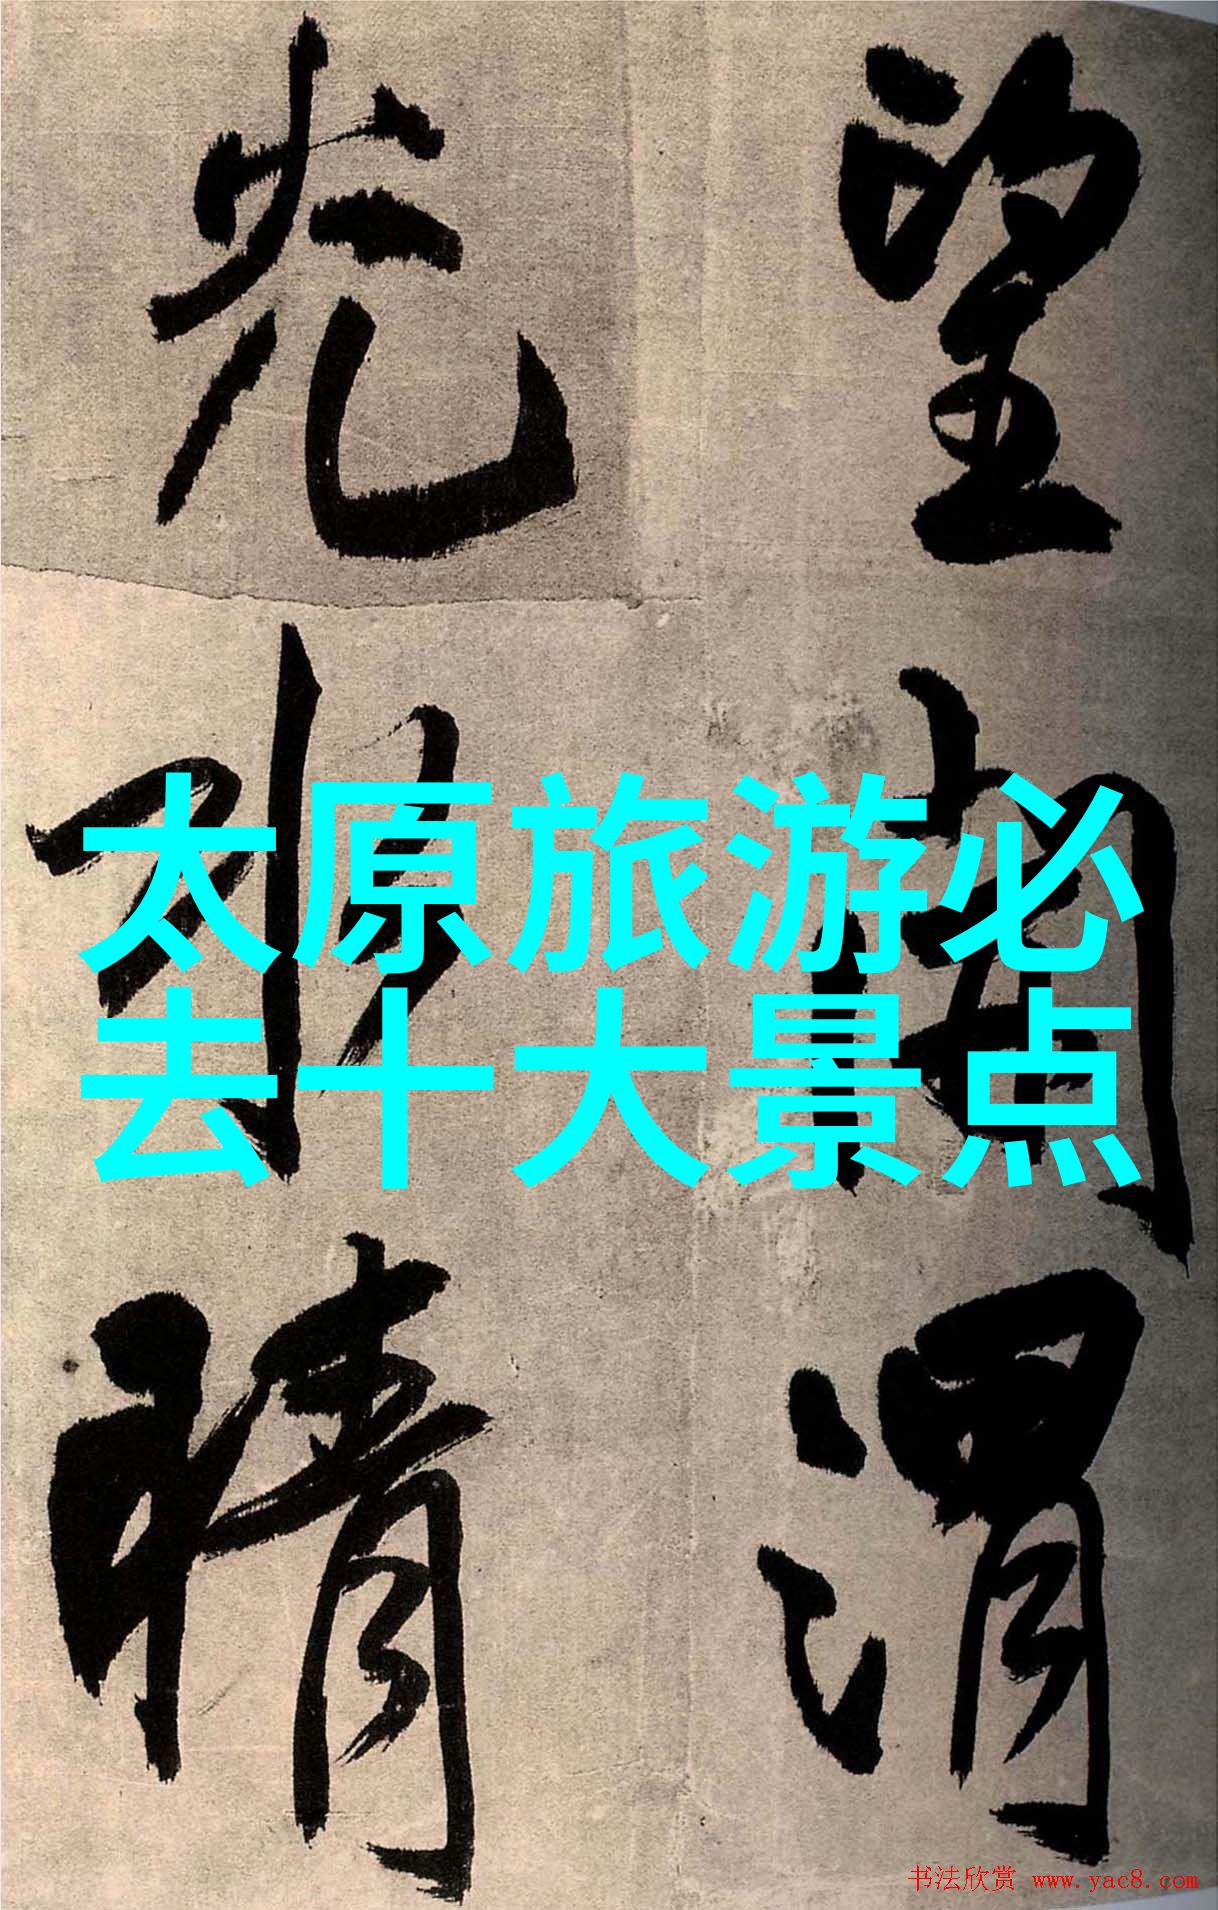 望渭
光晴
太原旅游必
去十大景点
书法欣赏 www.yac8.com